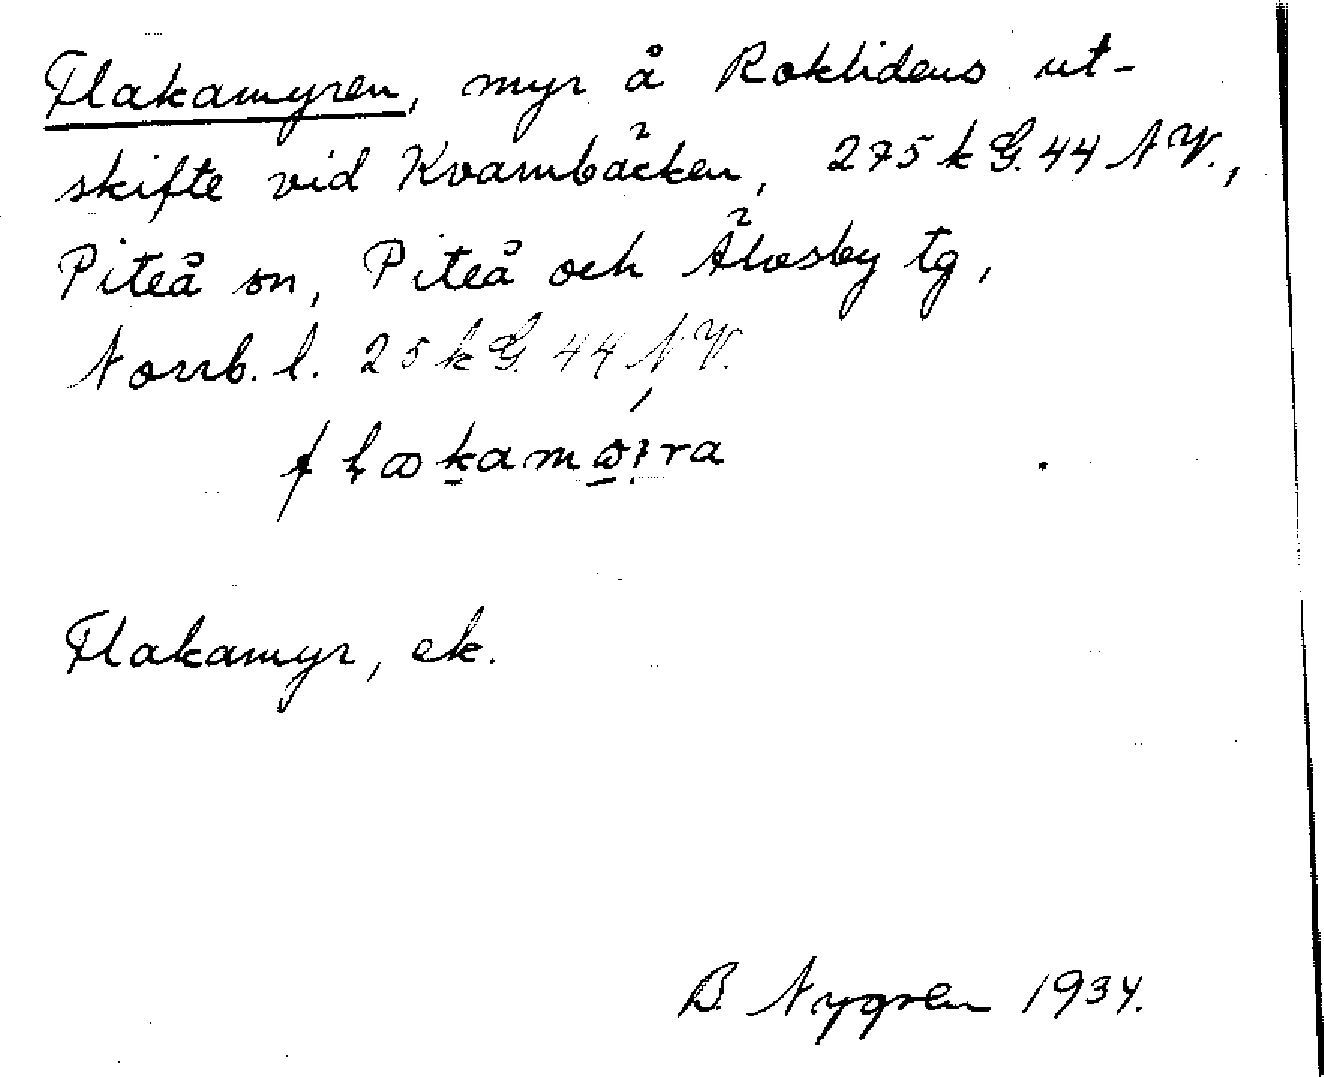 Flakamyren, myr å Roklidens ut-
skifte vid Kvarnbäcken, 275 k G. 44 N V.,
Piteå sn, Piteå och Älvsby tg,
Norrb. l. 25 k G. 44 N V.
Flakamyr, ek.
B. Nygren 1934.